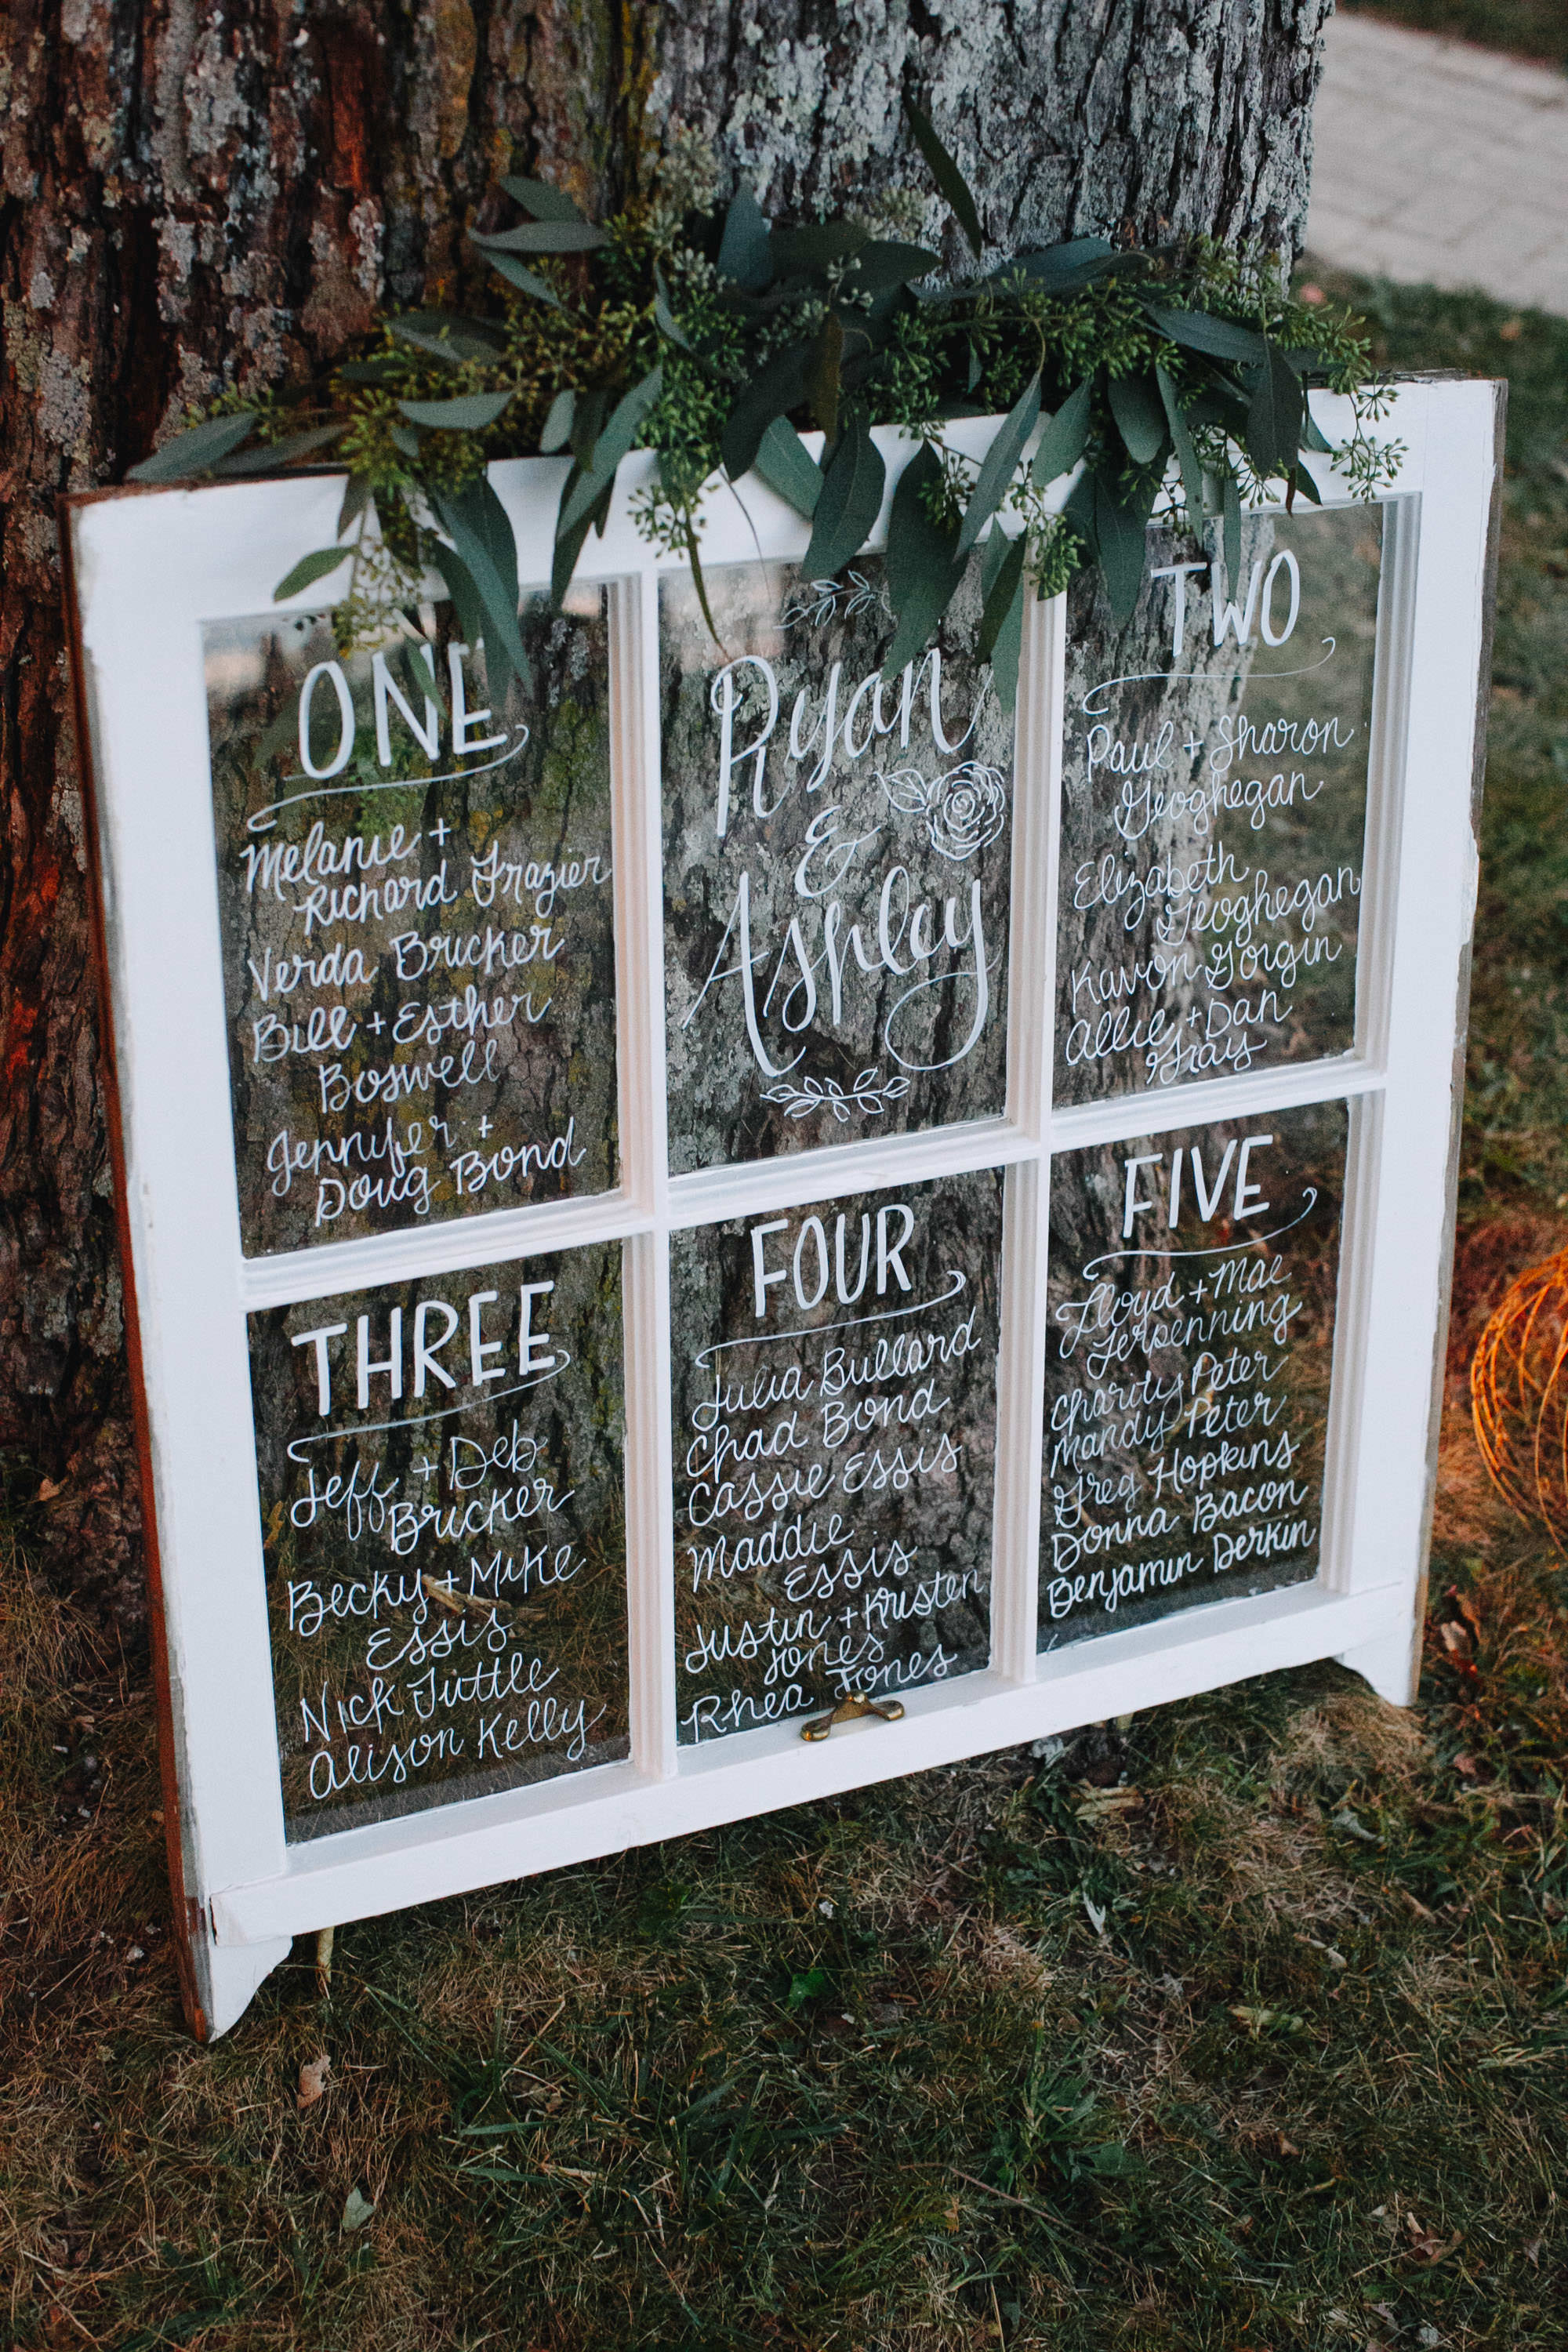 ONE
Melanie +
Richard Frazier
Verda Bricker
Bill + Esther
Boswell
Jennifer +
Doug Bond
Ryan
&
Ashley
TWO
Paul + Sharon
Geoghegan
Elizabeth
Geoghegan
Kavon Gorgin
Allie + Dan
Gray
THREE
Jeff + Deb
Bricker
Becky + Mike
Essis
Nick Tuttle
Alison Kelly
FOUR
Julia Bullard
Chad Bond
Cassie Essis
Maddie
Essis
Justin + Kristen
Jones
Rhea Jones
FIVE
Lloyd + Mae
Terpenning
Charity Peter
Mandy Peter
Greg Hopkins
Donna Bacon
Benjamin Derkin